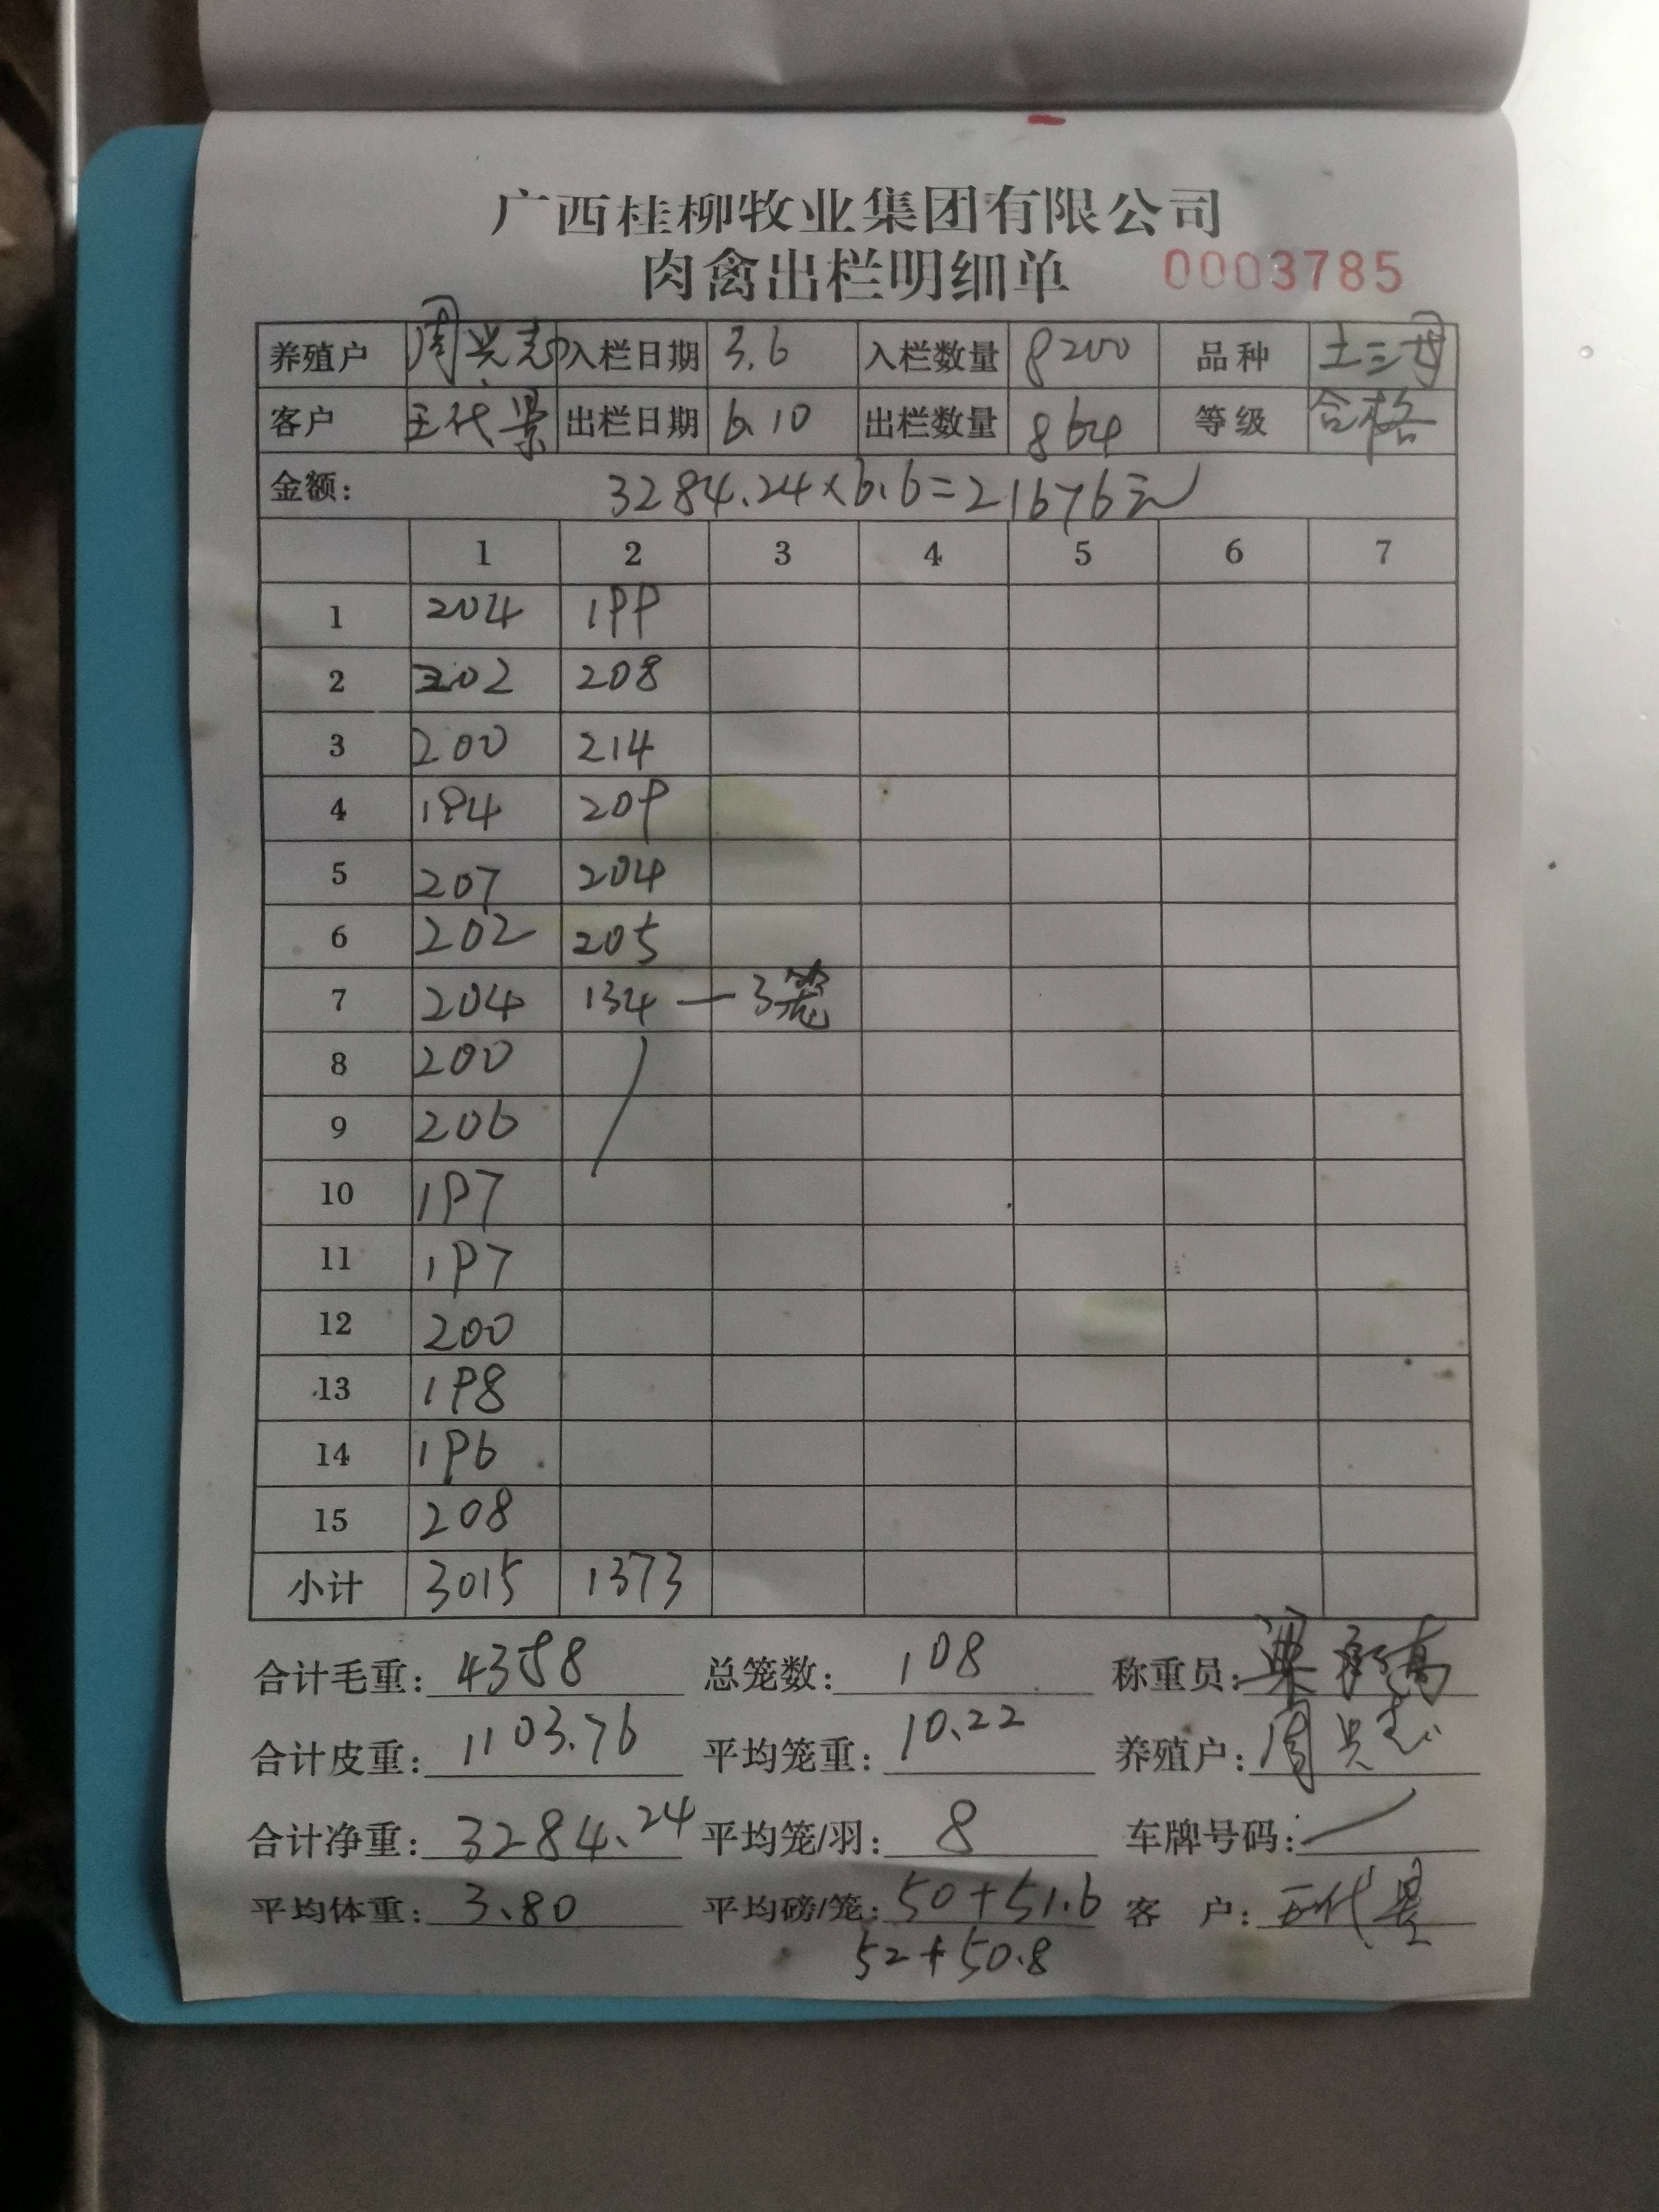 广西桂柳牧业集团有限公司
肉禽出栏明细单 0003785
养殖户 周兴志 入栏日期 3.6 入栏数量 8200 品种 土三西
客户 王代景 出栏日期 6.10 出栏数量 864 等级 合格
金额: 3284.24×6.6=21676元
1 2 3 4 5 6 7
1 204 199
2 202 208
3 200 214
4 194 209
5 207 204
6 202 205
7 204 134 — 3笼
8 200
9 206
10 197
11 197
12 200
13 198
14 196
15 208
小计 3015 1373
合计毛重: 4388 总笼数: 108 称重员: 梁
合计皮重: 1103.76 平均笼重: 10.22 养殖户: 周兴志
合计净重: 3284.24 平均笼/羽: 8 车牌号码:
平均体重: 3.80 平均磅/笼: 50+51.6 客 户: 王代景
52+50.8